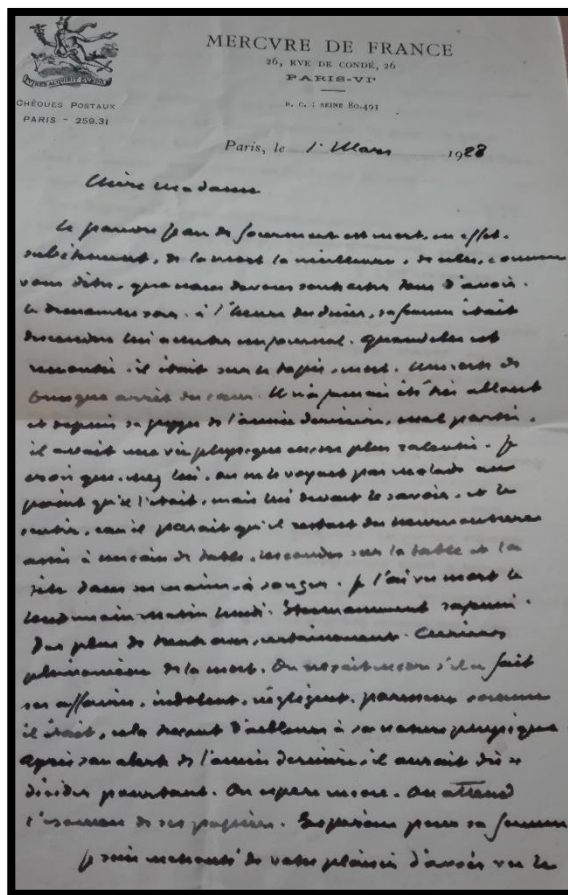 MERCVRE DE FRANCE
26, RVE DE CONDÉ, 26
PARIS-VIᵉ
R. C. : SEINE 80.491
CHÈQUES POSTAUX
PARIS - 259.31
Paris, le 1ᵉʳ Mars 1928
Chère Madame
Le pauvre Jean de Gourmont est mort, en effet.
subitement, de la mort la meilleure, de celle, comme
vous dites, que nous devons souhaiter tous d'avoir.
Le dimanche soir, à l'heure du dîner, sa femme était
descendue lui acheter un journal. Quand elle est
remontée, il était sur le tapis, mort. Une sorte de
brusque arrêt du cœur. Il n'a jamais été très allant
et depuis sa grippe de l'année dernière, mal partie,
il avait une vie physique encore plus ralentie. Je
crois que, chez lui, on ne le voyait pas malade au
point qu'il l'était, mais lui devait le savoir, et le
sentir, car il paraît qu'il restait des heures entières
assis à un coin de table, les coudes sur la table et la
tête dans ses mains, à songer. Je l'ai vu mort le
lendemain matin lundi. Étonnamment rajeuni.
Pas plus de trente ans, certainement. Curieux
phénomène de la mort. On ne sait encore s'il a fait
ses affaires, indolent, négligent, paresseux comme
il était, cela tenant d'ailleurs à sa nature physique
Après son alerte de l'année dernière, il aurait dû se
décider pourtant. On espère encore. On attend
l'examen de ses papiers. Espérons pour sa femme
Je suis enchanté de votre plaisir d'avoir vu le